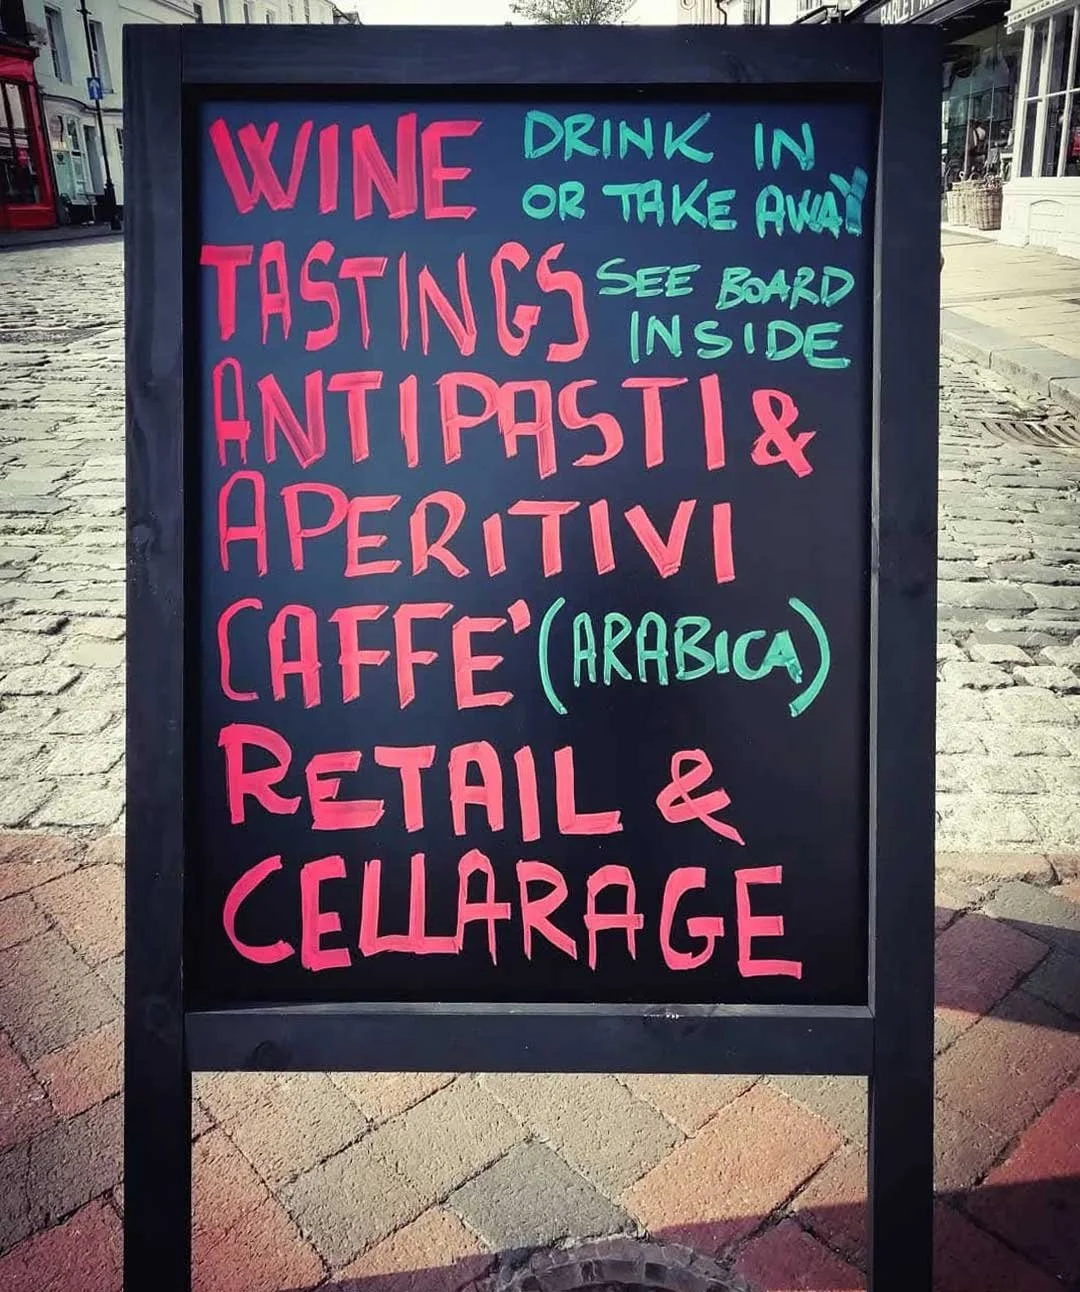 WINE DRINK IN
OR TAKE AWAY
TASTINGS SEE BOARD
INSIDE
ANTIPASTI &
APERITIVI
CAFFE' (ARABICA)
RETAIL &
CELLARAGE